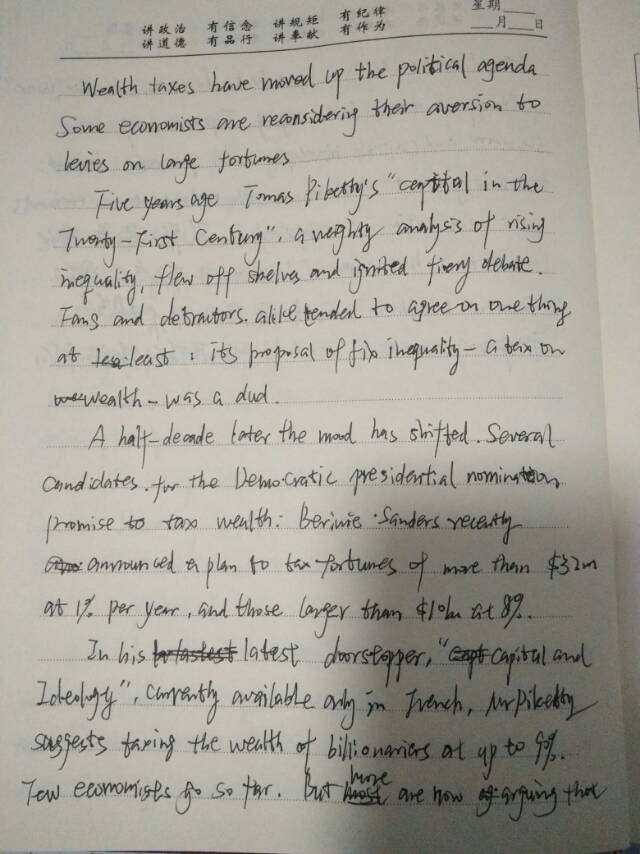 讲政治 有信念 讲规矩 有纪律
讲道德 有品行 讲奉献 有作为
星期
月 日
Wealth taxes have moved up the political agenda
Some economists are reconsidering their aversion to
levies on large fortunes
Five years age Tomas Piketty's "capital in the
Twenty-First Century", a weighty analysis of rising
inequality, flew off shelves and ignited fivery debate.
Fans and detractors. alike tended to agree on one thing
at least: its proposal of fix inequality - a tax on
wealth - was a dud.
A half-decade later the mood has shifted. Several
candidates. for the Democratic presidential nomination
promise to tax wealth: Bernie Sanders recently
announced a plan to tax fortunes of more than $32m
at 1% per year, and those larger than $10bn at 8%.
In his latest doorstopper, "Capital and
Ideology", currently available only in French, Mr Piketty
suggests taxing the wealth of billionariers at up to 9%.
Few economists go so far. But more are now arguing that